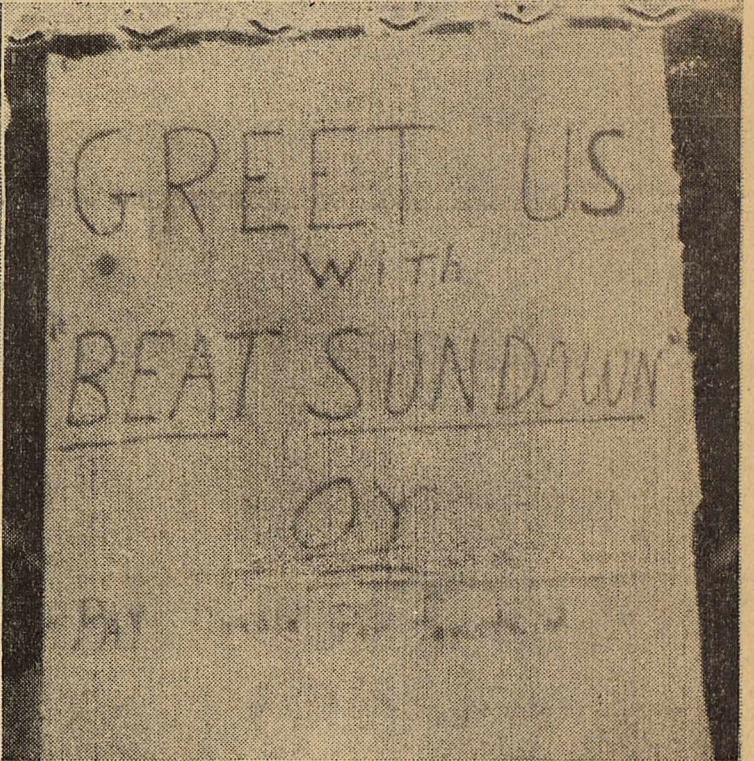 GREET US
WITH
"BEAT SUNDOWN"
OY
PAY